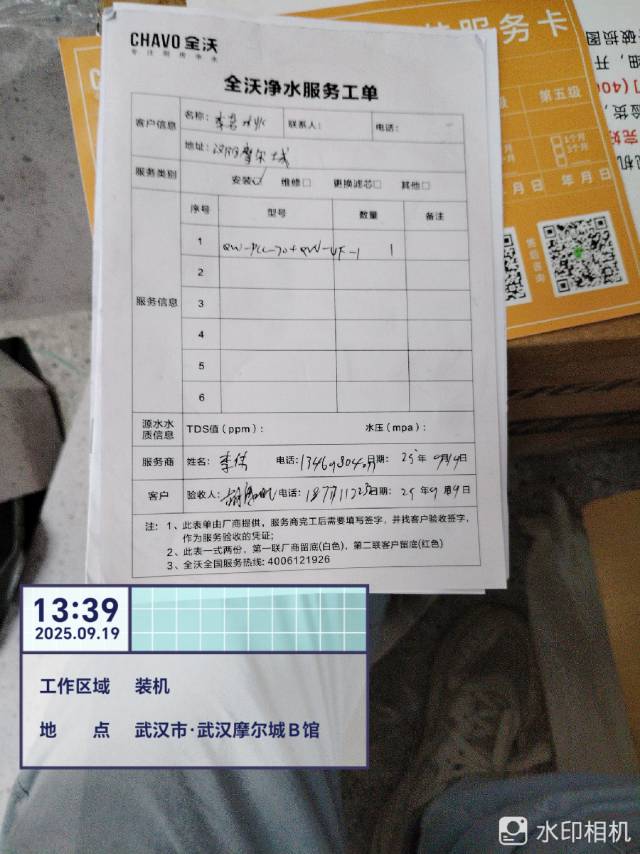 CHAVO 全沃
专注厨房净水
全沃净水服务工单
客户信息
名称：
联系人：
电话：
地址：汉阳摩尔城
服务类别
安装☑ 维修□ 更换滤芯□ 其他□
服务信息
序号 型号 数量 备注
1 1
2
3
4
5
6
源水水质信息
TDS值（ppm）： 水压（mpa）：
服务商 姓名：李伟 电话： 日期：25年9月19日
客户 验收人： 电话： 日期：25年9月19日
注：1、此表单由厂商提供，服务商完工后需要填写签字，并找客户验收签字，
作为服务验收的凭证；
2、此表一式两份，第一联厂商留底(白色)，第二联客户留底(红色)
3、全沃全国服务热线: 4006121926
服务卡
第五级
年 月 日
售后咨询
13:39
2025.09.19
工作区域 装机
地 点 武汉市·武汉摩尔城B馆
水印相机